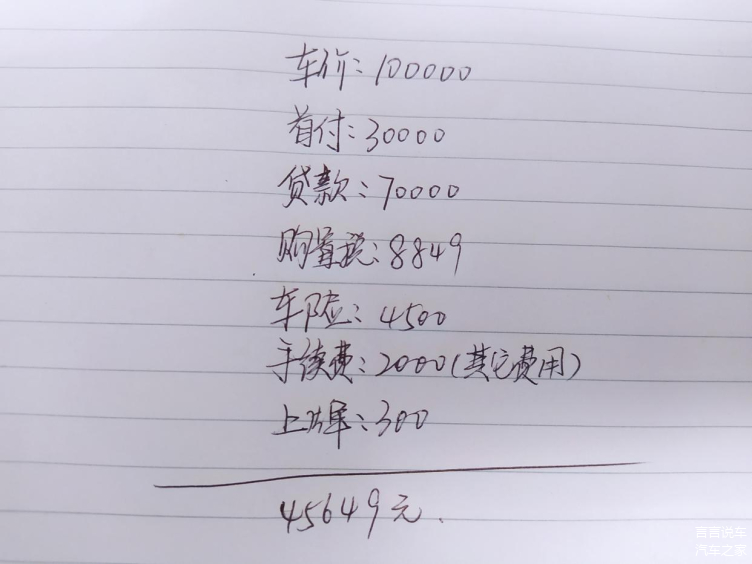 车价：100000
首付：30000
贷款：70000
购置税：8849
车险：4500
手续费：2000（其它费用）
上牌：300
45649元.
言言说车
汽车之家